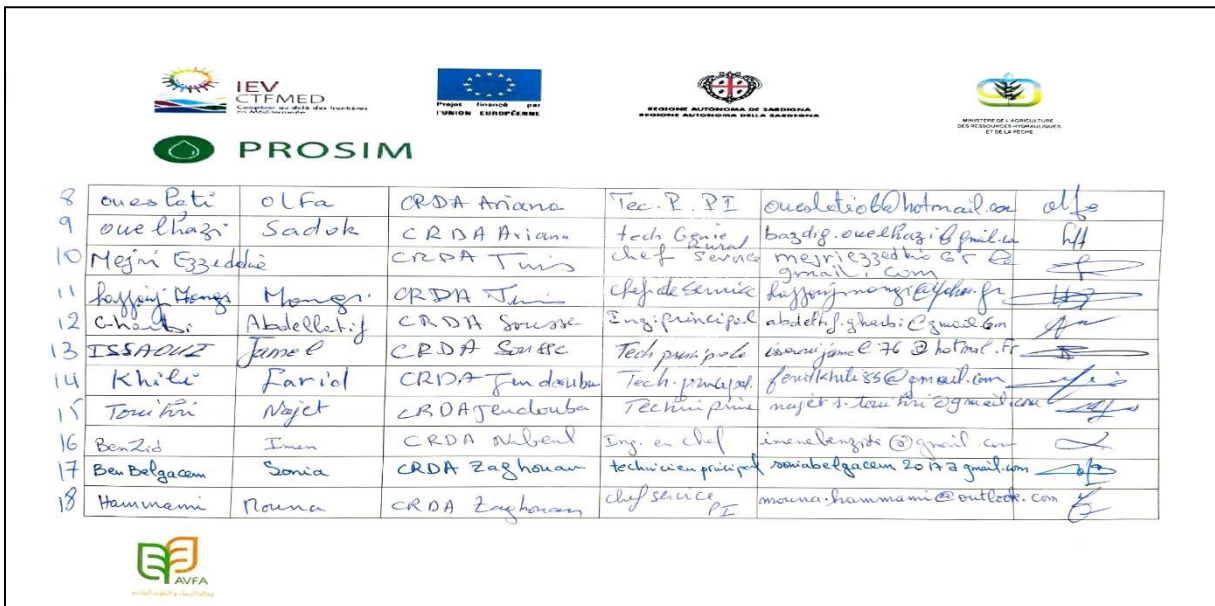 IEV
CTFMED
Coopérer au-delà des frontières
en Méditerranée
Projet financé par
l'UNION EUROPÉENNE
REGIONE AUTÒNOMA DE SARDIGNA
REGIONE AUTONOMA DELLA SARDEGNA
MINISTÈRE DE L'AGRICULTURE
DES RESSOURCES HYDRAULIQUES
ET DE LA PÊCHE
PROSIM
8 oueslati olfa CRDA Ariana Tec. P. PI oueslatiolfa@hotmail.com olfa
9 ouelhazi Sadok CRDA Ariana tech Genie Rural bazdig.ouelhazi@gmail.com
10 Mejri Ezzeddine CRDA Tunis chef Service mejriezzeddine65@
gmail.com
11 Mongi CRDA Tunis chef de service
12 Gharbi Abdellatif CRDA Sousse Ing. principal abdeltif.gharbi@gmail.com
13 ISSAOUI Jamel CRDA Sousse Tech principale issaouijamel76@hotmail.fr
14 Khlili Farid CRDA Jendouba Tech. principal
15 Najet CRDA Jendouba
16 BenZid Imen CRDA Nabeul Ing. en chef imenebenzide@gmail.com
17 Ben Belgacem Sonia CRDA Zaghouan technicien principal soniabelgacem2017@gmail.com
18 Hammami Mouna CRDA Zaghouan chef service PI mouna.hammami@outlook.com
AVFA
وكالة الإرشاد و التكوين الفلاحي